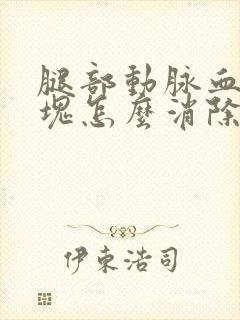 腿部動脉血
塊怎麼消除
伊東浩司